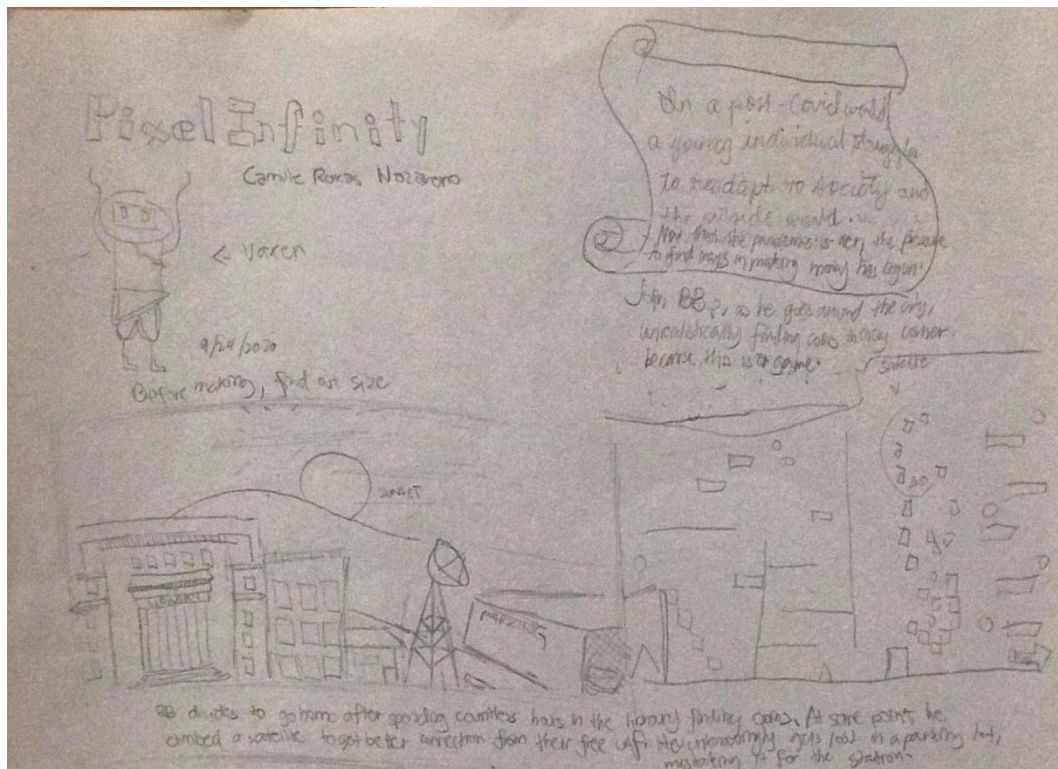 Pixel Infinity
Camile Roxas Nozareno
← Voxen
9/24/2020
Before making, find an size
In a post-Covid world
a young individual struggles
to readapt to society and
the outside world.
Now that the pandemic is over, the pressure
to find ways in making money has begun.
Join BB, as he goes around the city,
unrealistically finding coins in every corner.
because this is a game.
Satellite
SUNSET
LIBRARY
PARKING
BB decides to go home after spending countless hours in the library finding coins. At some point he
climbed a satellite to get better connection from their free wifi. He unknowingly gets lost in a parking lot,
mistaking it for the station.